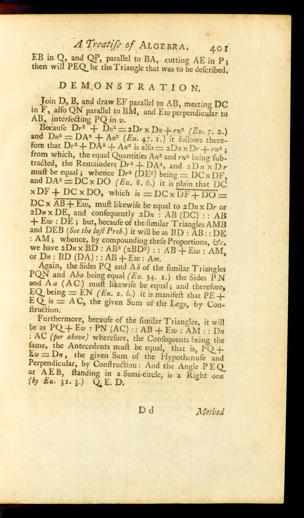 A Treatise of ALGEBRA. 401
EB in Q, and QP, parallel to BA, cutting AE in P;
then will PEQ be the Triangle that was to be described.
DEMONSTRATION.
Join D, B, and draw EF parallel to AB, meeting DC
in F, also QN parallel to BM, and Ew perpendicular to
AB, intersecting PQ in v.
Because Dr² + Dn² = 2Dr × Dn + rn² (Eu. 7. 2.)
and Dn² = DA² + An² (Eu. 47. 1.) it follows there-
fore that Dr² + DA² + An² is also = 2Dn × Dr + rn²;
from which, the equal Quantities An² and rn² being sub-
tracted, the Remainders Dr² + DA², and 2Dn × Dr
must be equal; whence Dr² (DE²) being = DC × DF,
and DA² = DC × DO (Eu. 8. 6.) it is plain that DC
× DF + DC × DO, which is = DC × DF + DO =
DC × AB + Ew, must likewise be equal to 2Dn × Dr or
2Dn × DE, and consequently 2Dn : AB (DC) :: AB
+ Ew : DE; but, because of the similar Triangles AMB
and DEB (See the last Prob.) it will be as BD : AB :: DE
: AM; whence, by compounding these Proportions, &c.
we have 2Dn × BD : AB² (2BD²) :: AB + Ew : AM,
or Dn : BD (DA) :: AB + Ew : Am.
Again, the Sides PQ and Ab of the similar Triangles
PQN and Aba being equal (Eu. 34. 1.) the Sides PN
and Aa (AC) must likewise be equal; and therefore,
EQ being = EN (Eu. 2. 6.) it is manifest that PE +
EQ is = AC, the given Sum of the Legs, by Con-
struction.
Furthermore, because of the similar Triangles, it will
be as PQ + Ev : PN (AC) :: AB + Ew : AM :: Dn
: AC (per above) wherefore, the Consequents being the
same, the Antecedents must be equal, that is, PQ +
Ev = Dn, the given Sum of the Hypothenuse and
Perpendicular, by Construction: And the Angle PEQ
or AEB, standing in a Semi-circle, is a Right one
(by Eu. 31. 3.) Q. E. D.
D d Method